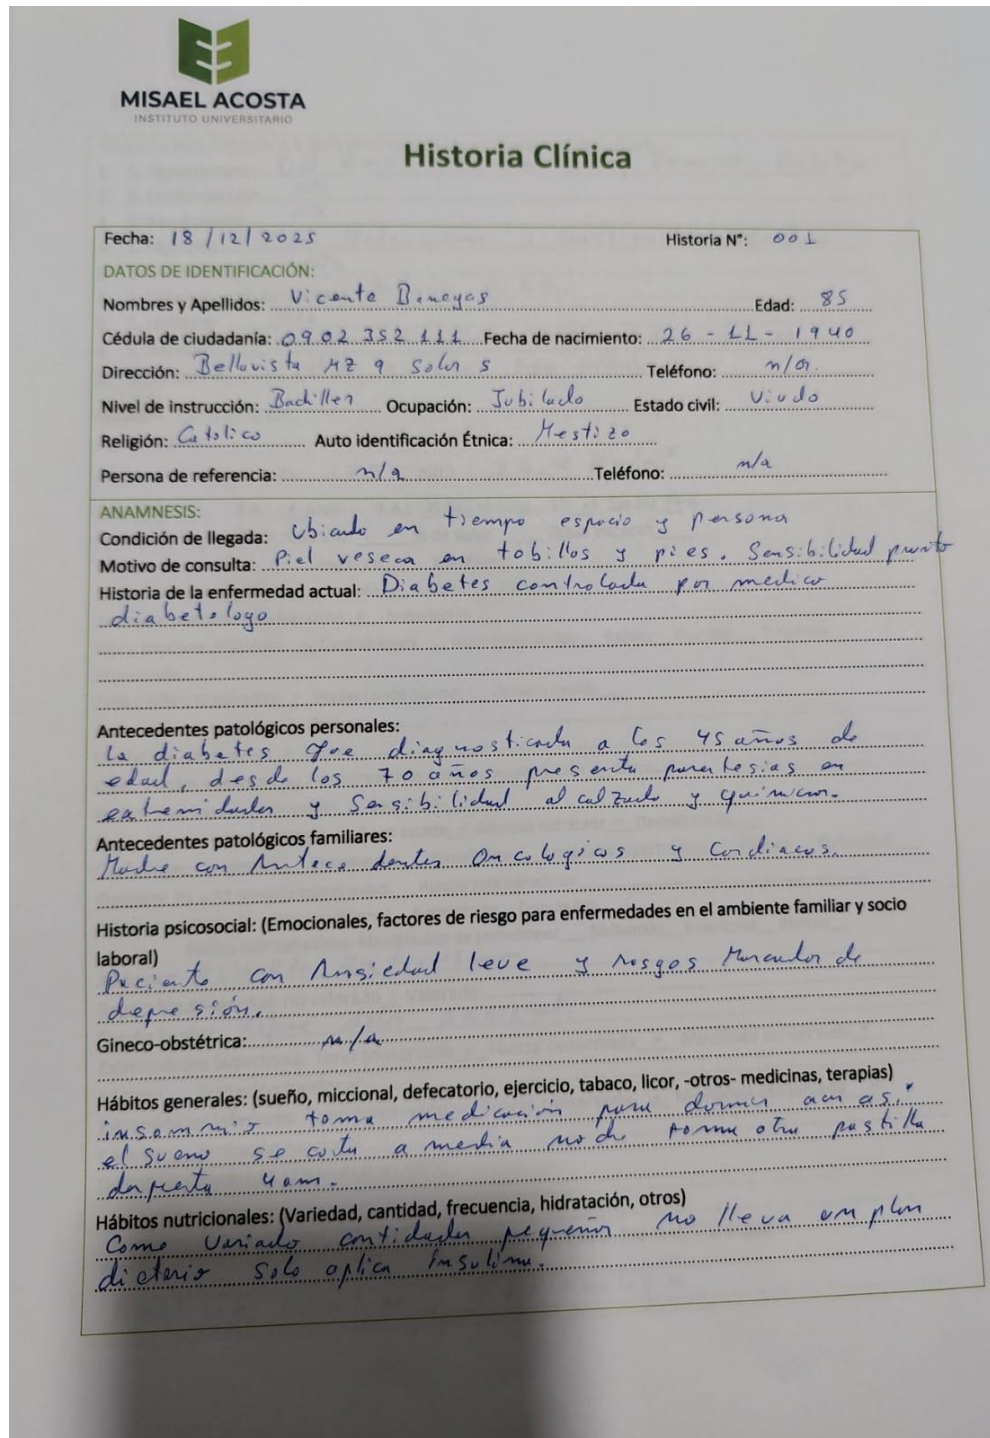 MISAEL ACOSTA
INSTITUTO UNIVERSITARIO
Historia Clínica
Fecha: 18/12/2025 Historia N°: 001
DATOS DE IDENTIFICACIÓN:
Nombres y Apellidos: Vicente Benegas Edad: 85
Cédula de ciudadanía: 0902352111 Fecha de nacimiento: 26-11-1940
Dirección: Bellavista MZ 9 Solar 5 Teléfono: n/a
Nivel de instrucción: Bachiller Ocupación: Jubilado Estado civil: Viudo
Religión: Catolico Auto identificación Étnica: Mestizo
Persona de referencia: n/a Teléfono: n/a
ANAMNESIS:
Condición de llegada: Ubicado en tiempo espacio y persona
Motivo de consulta: Piel reseca en tobillos y pies. Sensibilidad
Historia de la enfermedad actual: Diabetes controlada por medico
diabetologo
Antecedentes patológicos personales:
La diabetes fue diagnosticada a los 45 años de
edad, desde los 70 años presenta parestesias en
extremidades y Sensibilidad al calzado y quimicos.
Antecedentes patológicos familiares:
Madre con Antecedentes Oncologicos y Cardiacos.
Historia psicosocial: (Emocionales, factores de riesgo para enfermedades en el ambiente familiar y socio
laboral)
Paciente con Ansiedad leve y rasgos Marcados de
depresión.
Gineco-obstétrica: n/a
Hábitos generales: (sueño, miccional, defecatorio, ejercicio, tabaco, licor, -otros- medicinas, terapias)
insomnio toma medicación para dormir
el sueno se corta a media noche toma otra pastilla
despierta 4am.
Hábitos nutricionales: (Variedad, cantidad, frecuencia, hidratación, otros)
Come Variado cantidades pequeñas no lleva un plan
dieterio Solo aplica Insulina.